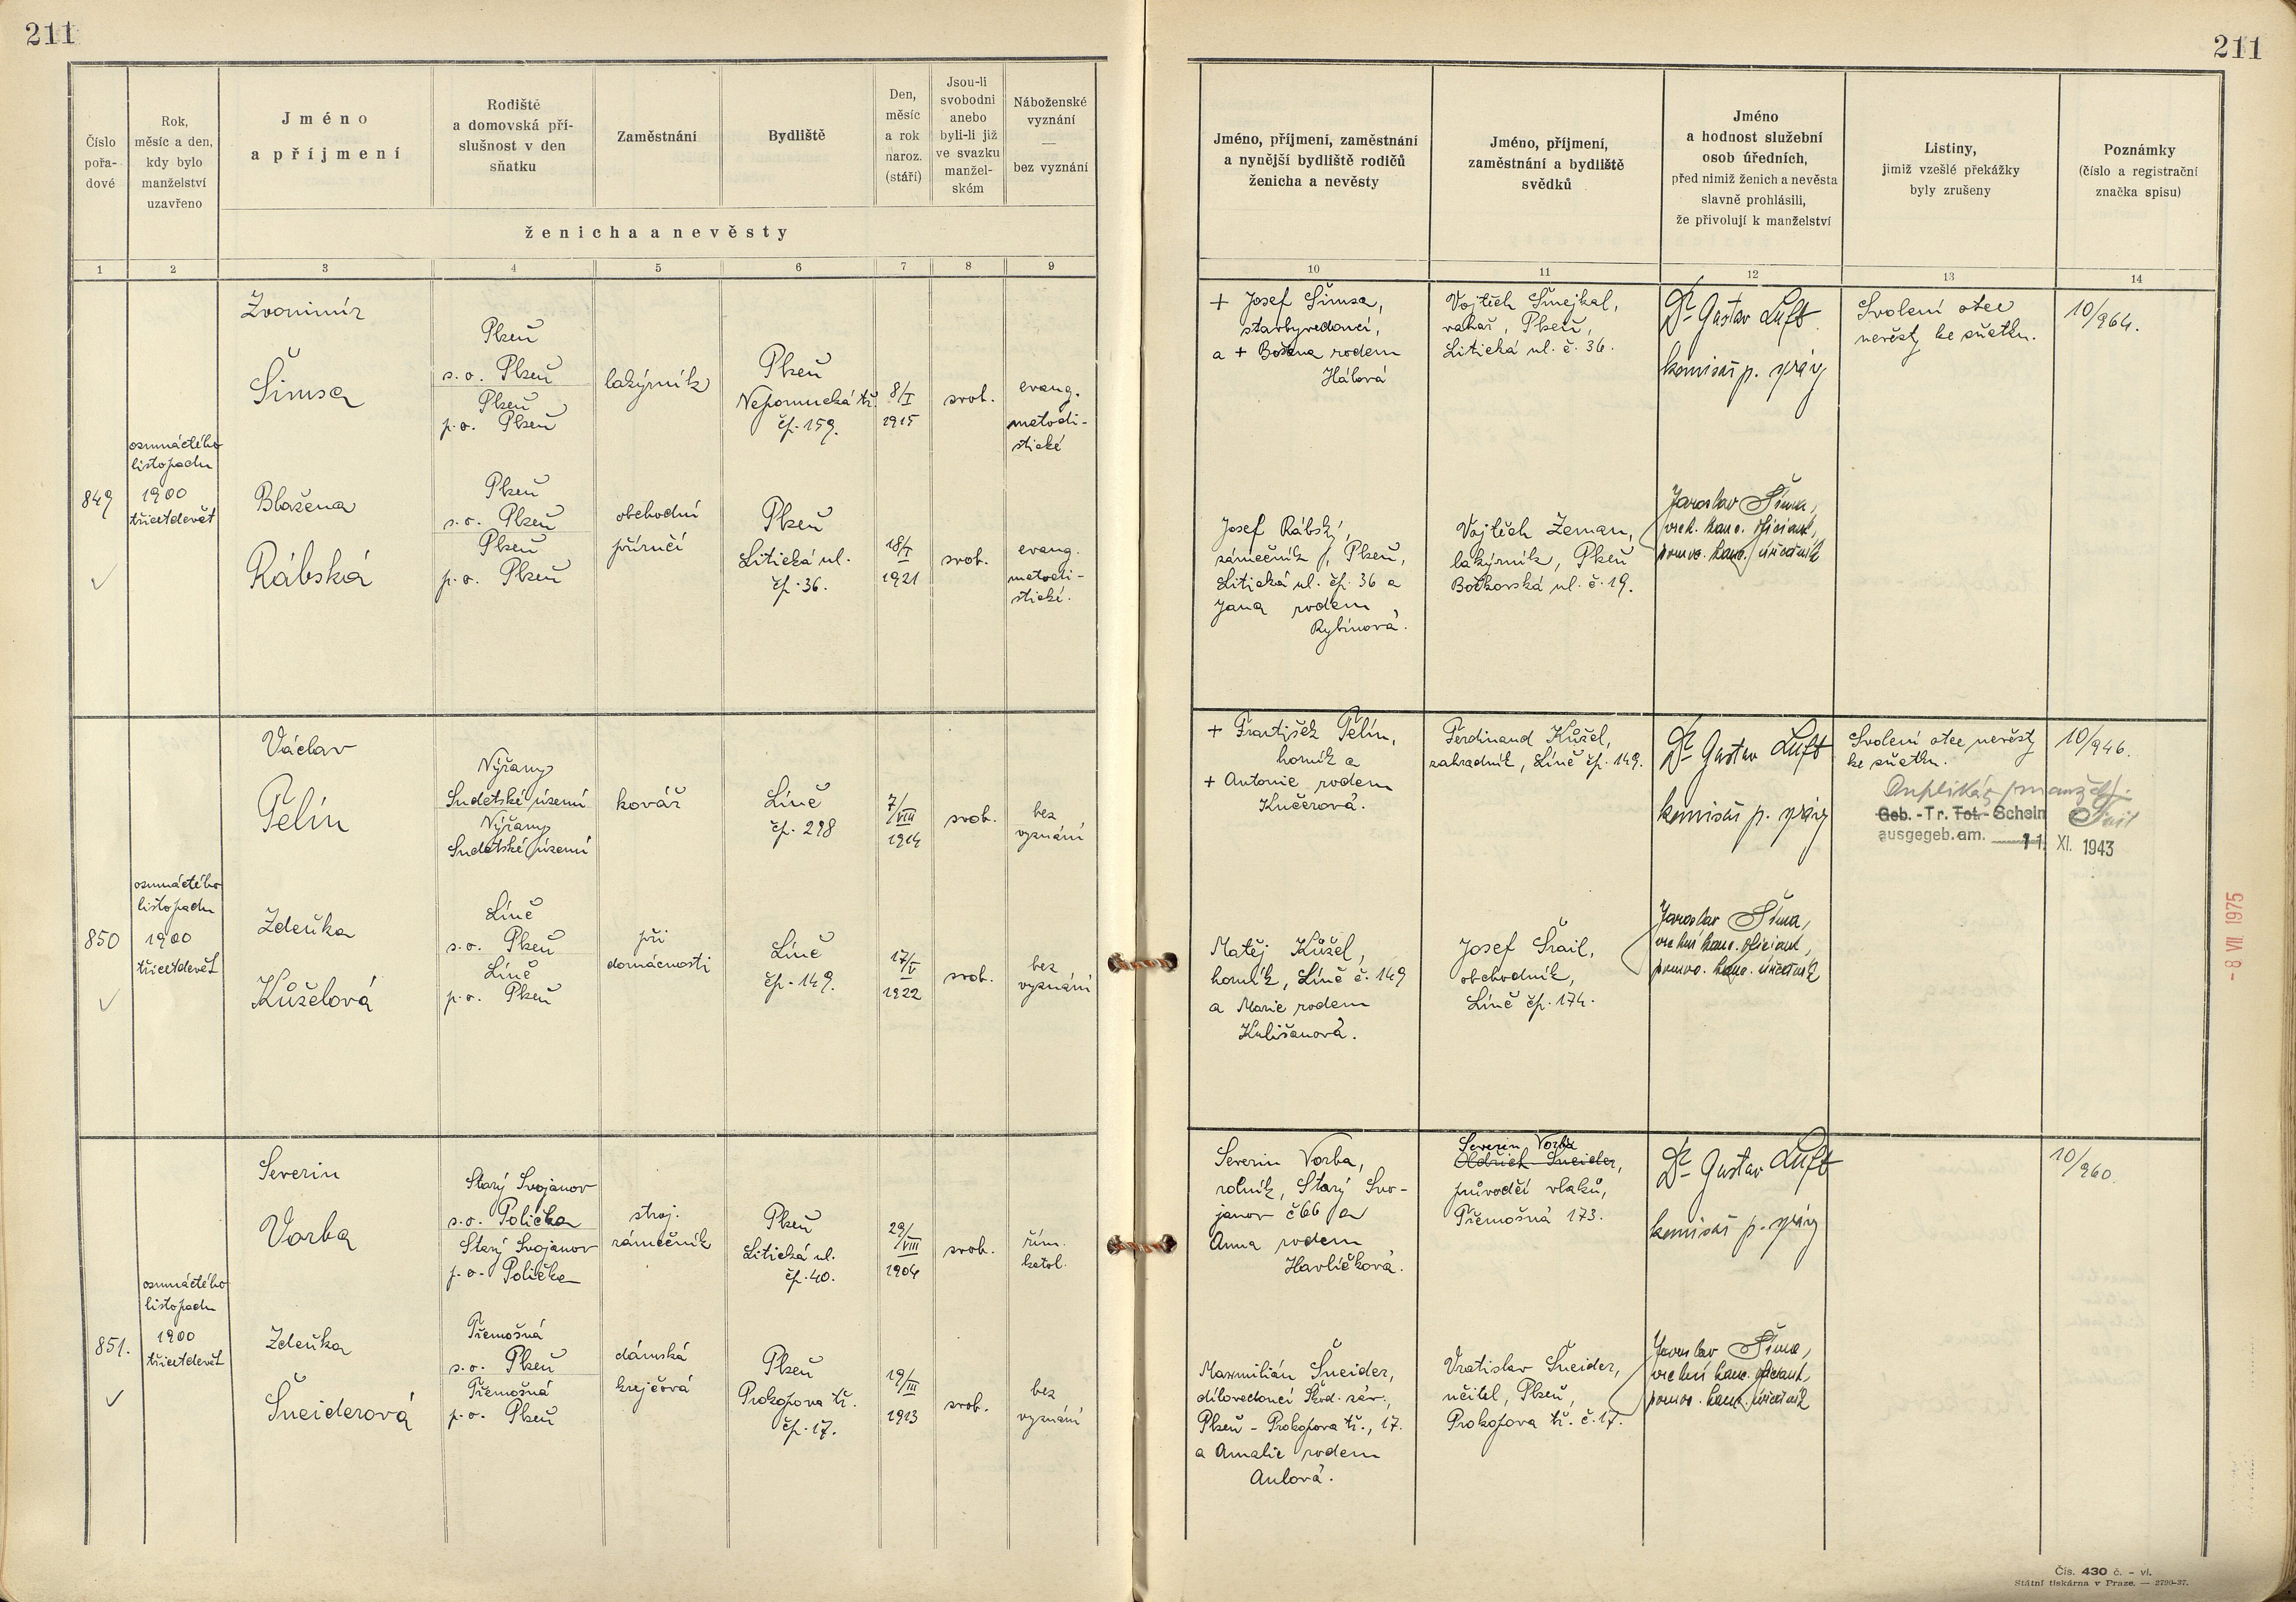 211
211
Číslo
pořa-
dové
Rok,
měsíc a den,
kdy bylo
manželství
uzavřeno
Jméno
a příjmení
Rodiště
a domovská pří-
slušnost v den
sňatku
Zaměstnání
Bydliště
Den,
měsíc
a rok
naroz.
(stáří)
Jsou-li
svobodni
anebo
byli-li již
ve svazku
manžel-
ském
Náboženské
vyznání
—
bez vyznání
ženicha a nevěsty
Jméno, příjmení, zaměstnání
a nynější bydliště rodičů
ženicha a nevěsty
Jméno, příjmení,
zaměstnání a bydliště
svědků
Jméno
a hodnost služební
osob úředních,
před nimiž ženich a nevěsta
slavně prohlásili,
že přivolují k manželství
Listiny,
jimiž vzešlé překážky
byly zrušeny
Poznámky
(číslo a registrační
značka spisu)
1 2 3 4 5 6 7 8 9 10 11 12 13 14
849
osmnáctého
listopadu
1900
třicetdevět
Zvonimír
Šimsa
Plzeň
s. o. Plzeň
Plzeň
p. o. Plzeň
lakýrník
Plzeň
Nepomucká tř.
čp. 159.
8/I
1915
svob.
evang.
metodi-
stické
Blažena
Rábská
Plzeň
s. o. Plzeň
Plzeň
p. o. Plzeň
obchodní
příručí
Plzeň
Litická ul.
čp. 36.
18/I
1921
svob.
evang.
metodi-
stické.
+ Josef Šimsa,
stavbyvedoucí,
a + Božena rodem
Hálová
Josef Rábský,
zámečník, Plzeň,
Litická ul. čp. 36 a
Jana rodem
Rybínová.
Vojtěch Šmejkal,
vahař, Plzeň,
Litická ul. č. 36.
Vojtěch Zeman,
lakýrník, Plzeň
Božkovská ul. č. 19.
Dr Gustav Luft
komisař p. správy
Jaroslav Šíma,
vrch. kanc. oficiant,
pomoc. kanc. úředník
Svolení otce
nevěsty ke sňatku.
10/964.
850
osmnáctého
listopadu
1900
třicetdevět
Václav
Pelín
Nýřany
Sudetské území
Nýřany
Sudetské území
kovář
Líně
čp. 298
7/VIII
1914
svob.
bez
vyznání
Zdeňka
Kůželová
Líně
s. o. Plzeň
Líně
p. o. Plzeň
při
domácnosti
Líně
čp. 149.
17/V
1922
svob.
bez
vyznání
+ František Pelín,
horník a
+ Antonie rodem
Kučerová.
Matěj Kůžel,
horník, Líně č. 149
a Marie rodem
Kulišanová.
Ferdinand Kůžel,
zahradník, Líně čp. 149.
Josef Šrail,
obchodník,
Líně čp. 174.
Dr Gustav Luft
komisař p. správy
Jaroslav Šíma,
vrchní kanc. oficiant,
pomoc. kanc. úředník
Svolení otce nevěsty
ke sňatku.
Duplikát
Geb.-Tr. Tot.-Schein
ausgegeb. am. 11. XI. 1943
10/946.
851.
osmnáctého
listopadu
1900
třicetdevět
Severin
Vorba
Starý Svojanov
s. o. Polička
Starý Svojanov
p. o. Polička
stroj.
zámečník
Plzeň
Litická ul.
čp. 40.
29/VIII
1904
svob.
řím.
katol.
Zdeňka
Šneiderová
Třemošná
s. o. Plzeň
Třemošná
p. o. Plzeň
dámská
krejčová
Plzeň
Prokopova tř.
čp. 17.
19/III
1913
svob.
bez
vyznání
Severin Vorba,
rolník, Starý Svo-
janov č 66 a
Anna rodem
Havlíčková.
Maxmilián Šneider,
dílovedoucí Škod. záv.,
Plzeň - Prokopova tř., 17.
a Amalie rodem
Aulová.
Severin Vorba
Oldřich Šneider,
průvodčí vlaků,
Třemošná 173.
Vratislav Šneider,
učitel, Plzeň,
Prokopova tř. č. 17.
Dr Gustav Luft
komisař p. správy
Jaroslav Šíma,
vrchní kanc. oficiant,
pomoc. kanc. úředník
10/960.
- 8. VII. 1975
Čís. 430 č. - vl.
Státní tiskárna v Praze. — 2790-37.